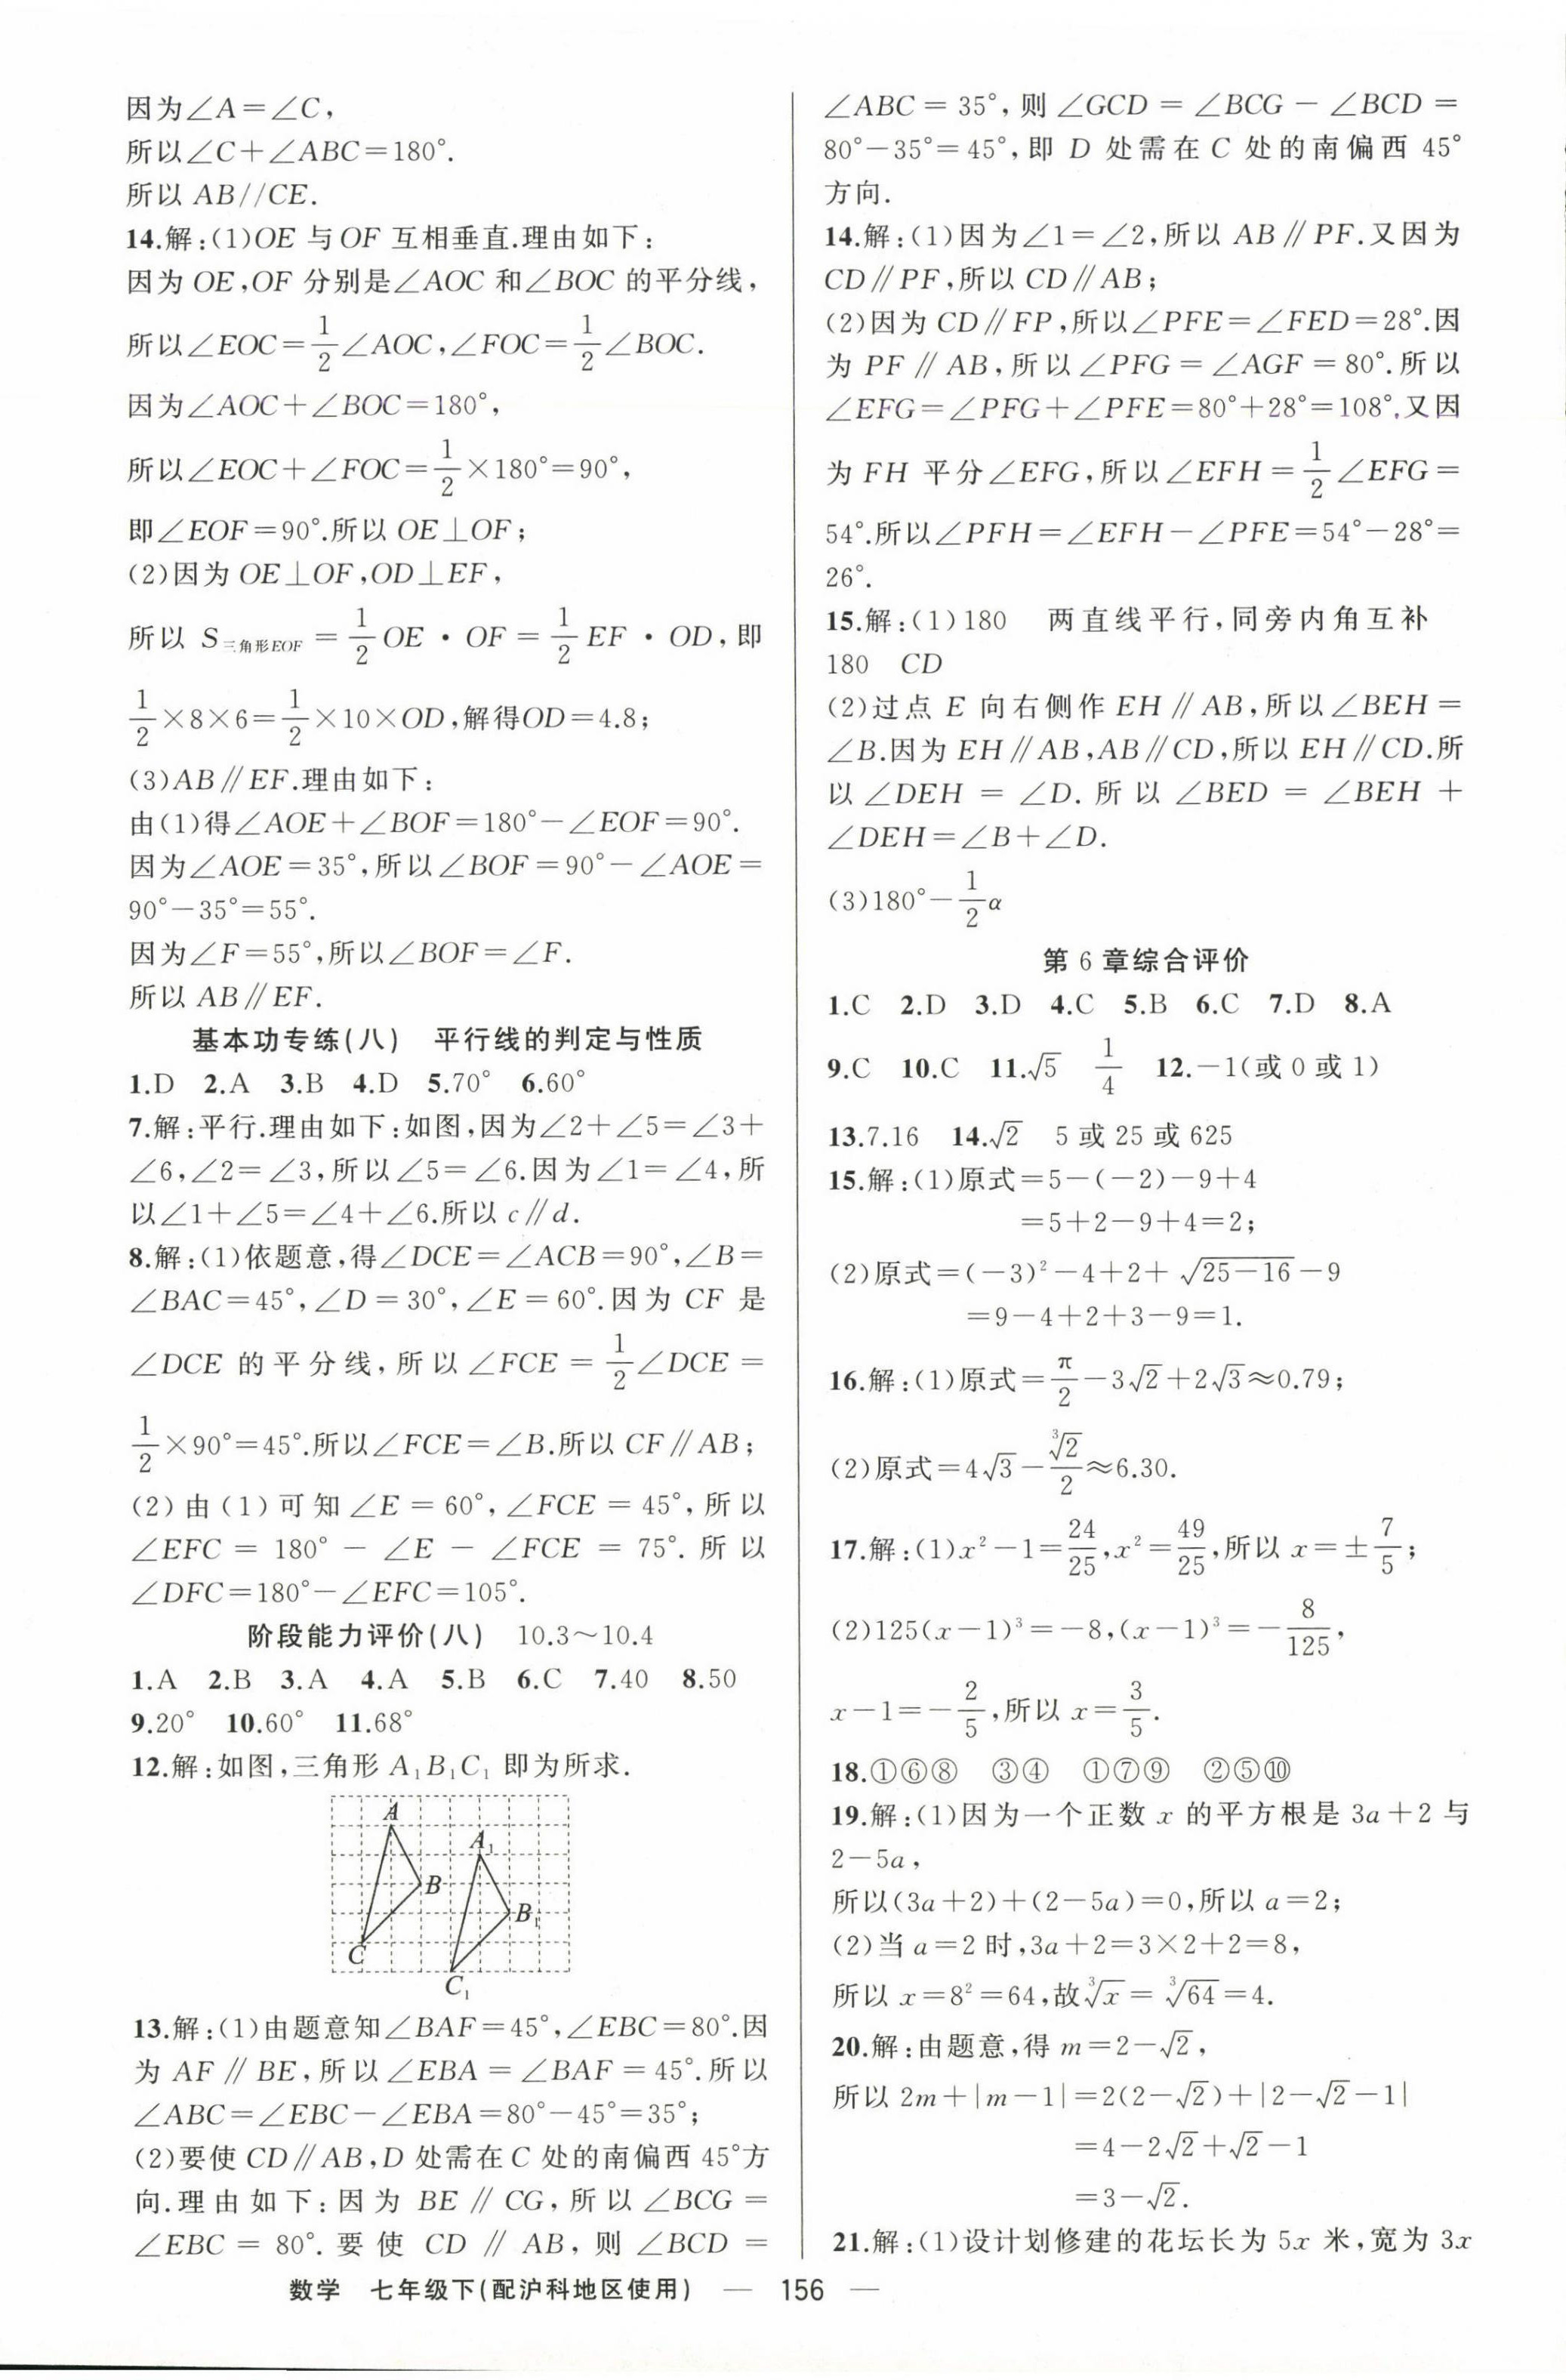 因为∠A=∠C,
所以∠C+∠ABC=180°.
所以 AB//CE.
14.解:(1)OE 与 OF 互相垂直.理由如下:
因为 OE,OF 分别是∠AOC 和∠BOC 的平分线,
所以∠EOC=1/2∠AOC,∠FOC=1/2∠BOC.
因为∠AOC+∠BOC=180°,
所以∠EOC+∠FOC=1/2×180°=90°,
即∠EOF=90°.所以 OE⊥OF;
(2)因为 OE⊥OF,OD⊥EF,
所以 S三角形EOF = 1/2 OE · OF = 1/2 EF · OD,即
1/2×8×6=1/2×10×OD,解得OD=4.8;
(3)AB∥EF.理由如下:
由(1)得∠AOE+∠BOF=180°-∠EOF=90°.
因为∠AOE=35°,所以∠BOF=90°-∠AOE=
90°-35°=55°.
因为∠F=55°,所以∠BOF=∠F.
所以 AB∥EF.
基本功专练(八) 平行线的判定与性质
1.D 2.A 3.B 4.D 5.70° 6.60°
7.解:平行.理由如下:如图,因为∠2+∠5=∠3+
∠6,∠2=∠3,所以∠5=∠6.因为∠1=∠4,所
以∠1+∠5=∠4+∠6.所以 c∥d.
8.解:(1)依题意,得∠DCE=∠ACB=90°,∠B=
∠BAC=45°,∠D=30°,∠E=60°.因为 CF 是
∠DCE 的平分线,所以∠FCE=1/2∠DCE=
1/2×90°=45°.所以∠FCE=∠B.所以 CF∥AB;
(2)由(1)可知∠E=60°,∠FCE=45°,所以
∠EFC = 180° - ∠E - ∠FCE = 75°.所以
∠DFC=180°-∠EFC=105°.
阶段能力评价(八) 10.3~10.4
1.A 2.B 3.A 4.A 5.B 6.C 7.40 8.50
9.20° 10.60° 11.68°
12.解:如图,三角形 A₁B₁C₁ 即为所求.
A
A₁
B
B₁
C
C₁
13.解:(1)由题意知∠BAF=45°,∠EBC=80°.因
为 AF∥BE,所以∠EBA=∠BAF=45°.所以
∠ABC=∠EBC-∠EBA=80°-45°=35°;
(2)要使 CD∥AB,D 处需在 C 处的南偏西 45°方
向.理由如下:因为 BE∥CG,所以∠BCG=
∠EBC = 80°.要使 CD∥AB,则∠BCD =
∠ABC = 35°,则∠GCD = ∠BCG - ∠BCD =
80°-35°=45°,即 D 处需在 C 处的南偏西 45°
方向.
14.解:(1)因为∠1=∠2,所以 AB∥PF.又因为
CD∥PF,所以 CD∥AB;
(2)因为 CD∥FP,所以∠PFE=∠FED=28°.因
为 PF∥AB,所以∠PFG=∠AGF=80°.所以
∠EFG=∠PFG+∠PFE=80°+28°=108°.又因
为 FH 平分∠EFG,所以∠EFH=1/2∠EFG=
54°.所以∠PFH=∠EFH-∠PFE=54°-28°=
26°.
15.解:(1)180 两直线平行,同旁内角互补
180 CD
(2)过点 E 向右侧作 EH∥AB,所以∠BEH=
∠B.因为 EH∥AB,AB∥CD,所以 EH∥CD.所
以∠DEH = ∠D.所以∠BED = ∠BEH +
∠DEH=∠B+∠D.
(3)180°-1/2α
第 6 章综合评价
1.C 2.D 3.D 4.C 5.B 6.C 7.D 8.A
9.C 10.C 11.√5 1/4 12.-1(或 0 或 1)
13.7.16 14.√2 5 或 25 或 625
15.解:(1)原式=5-(-2)-9+4
=5+2-9+4=2;
(2)原式=(-3)²-4+2+√(25-16)-9
=9-4+2+3-9=1.
16.解:(1)原式=π/2-3√2+2√3≈0.79;
(2)原式=4√3-∛2/2≈6.30.
17.解:(1)x²-1=24/25,x²=49/25,所以 x=±7/5;
(2)125(x-1)³=-8,(x-1)³=-8/125,
x-1=-2/5,所以 x=3/5.
18.①⑥⑧ ③④ ①⑦⑨ ②⑤⑩
19.解:(1)因为一个正数 x 的平方根是 3a+2 与
2-5a,
所以(3a+2)+(2-5a)=0,所以 a=2;
(2)当 a=2 时,3a+2=3×2+2=8,
所以 x=8²=64,故∛x=∛64=4.
20.解:由题意,得 m=2-√2,
所以 2m+|m-1|=2(2-√2)+|2-√2-1|
=4-2√2+√2-1
=3-√2.
21.解:(1)设计划修建的花坛长为 5x 米,宽为 3x
数学 七年级下(配沪科地区使用) — 156 —